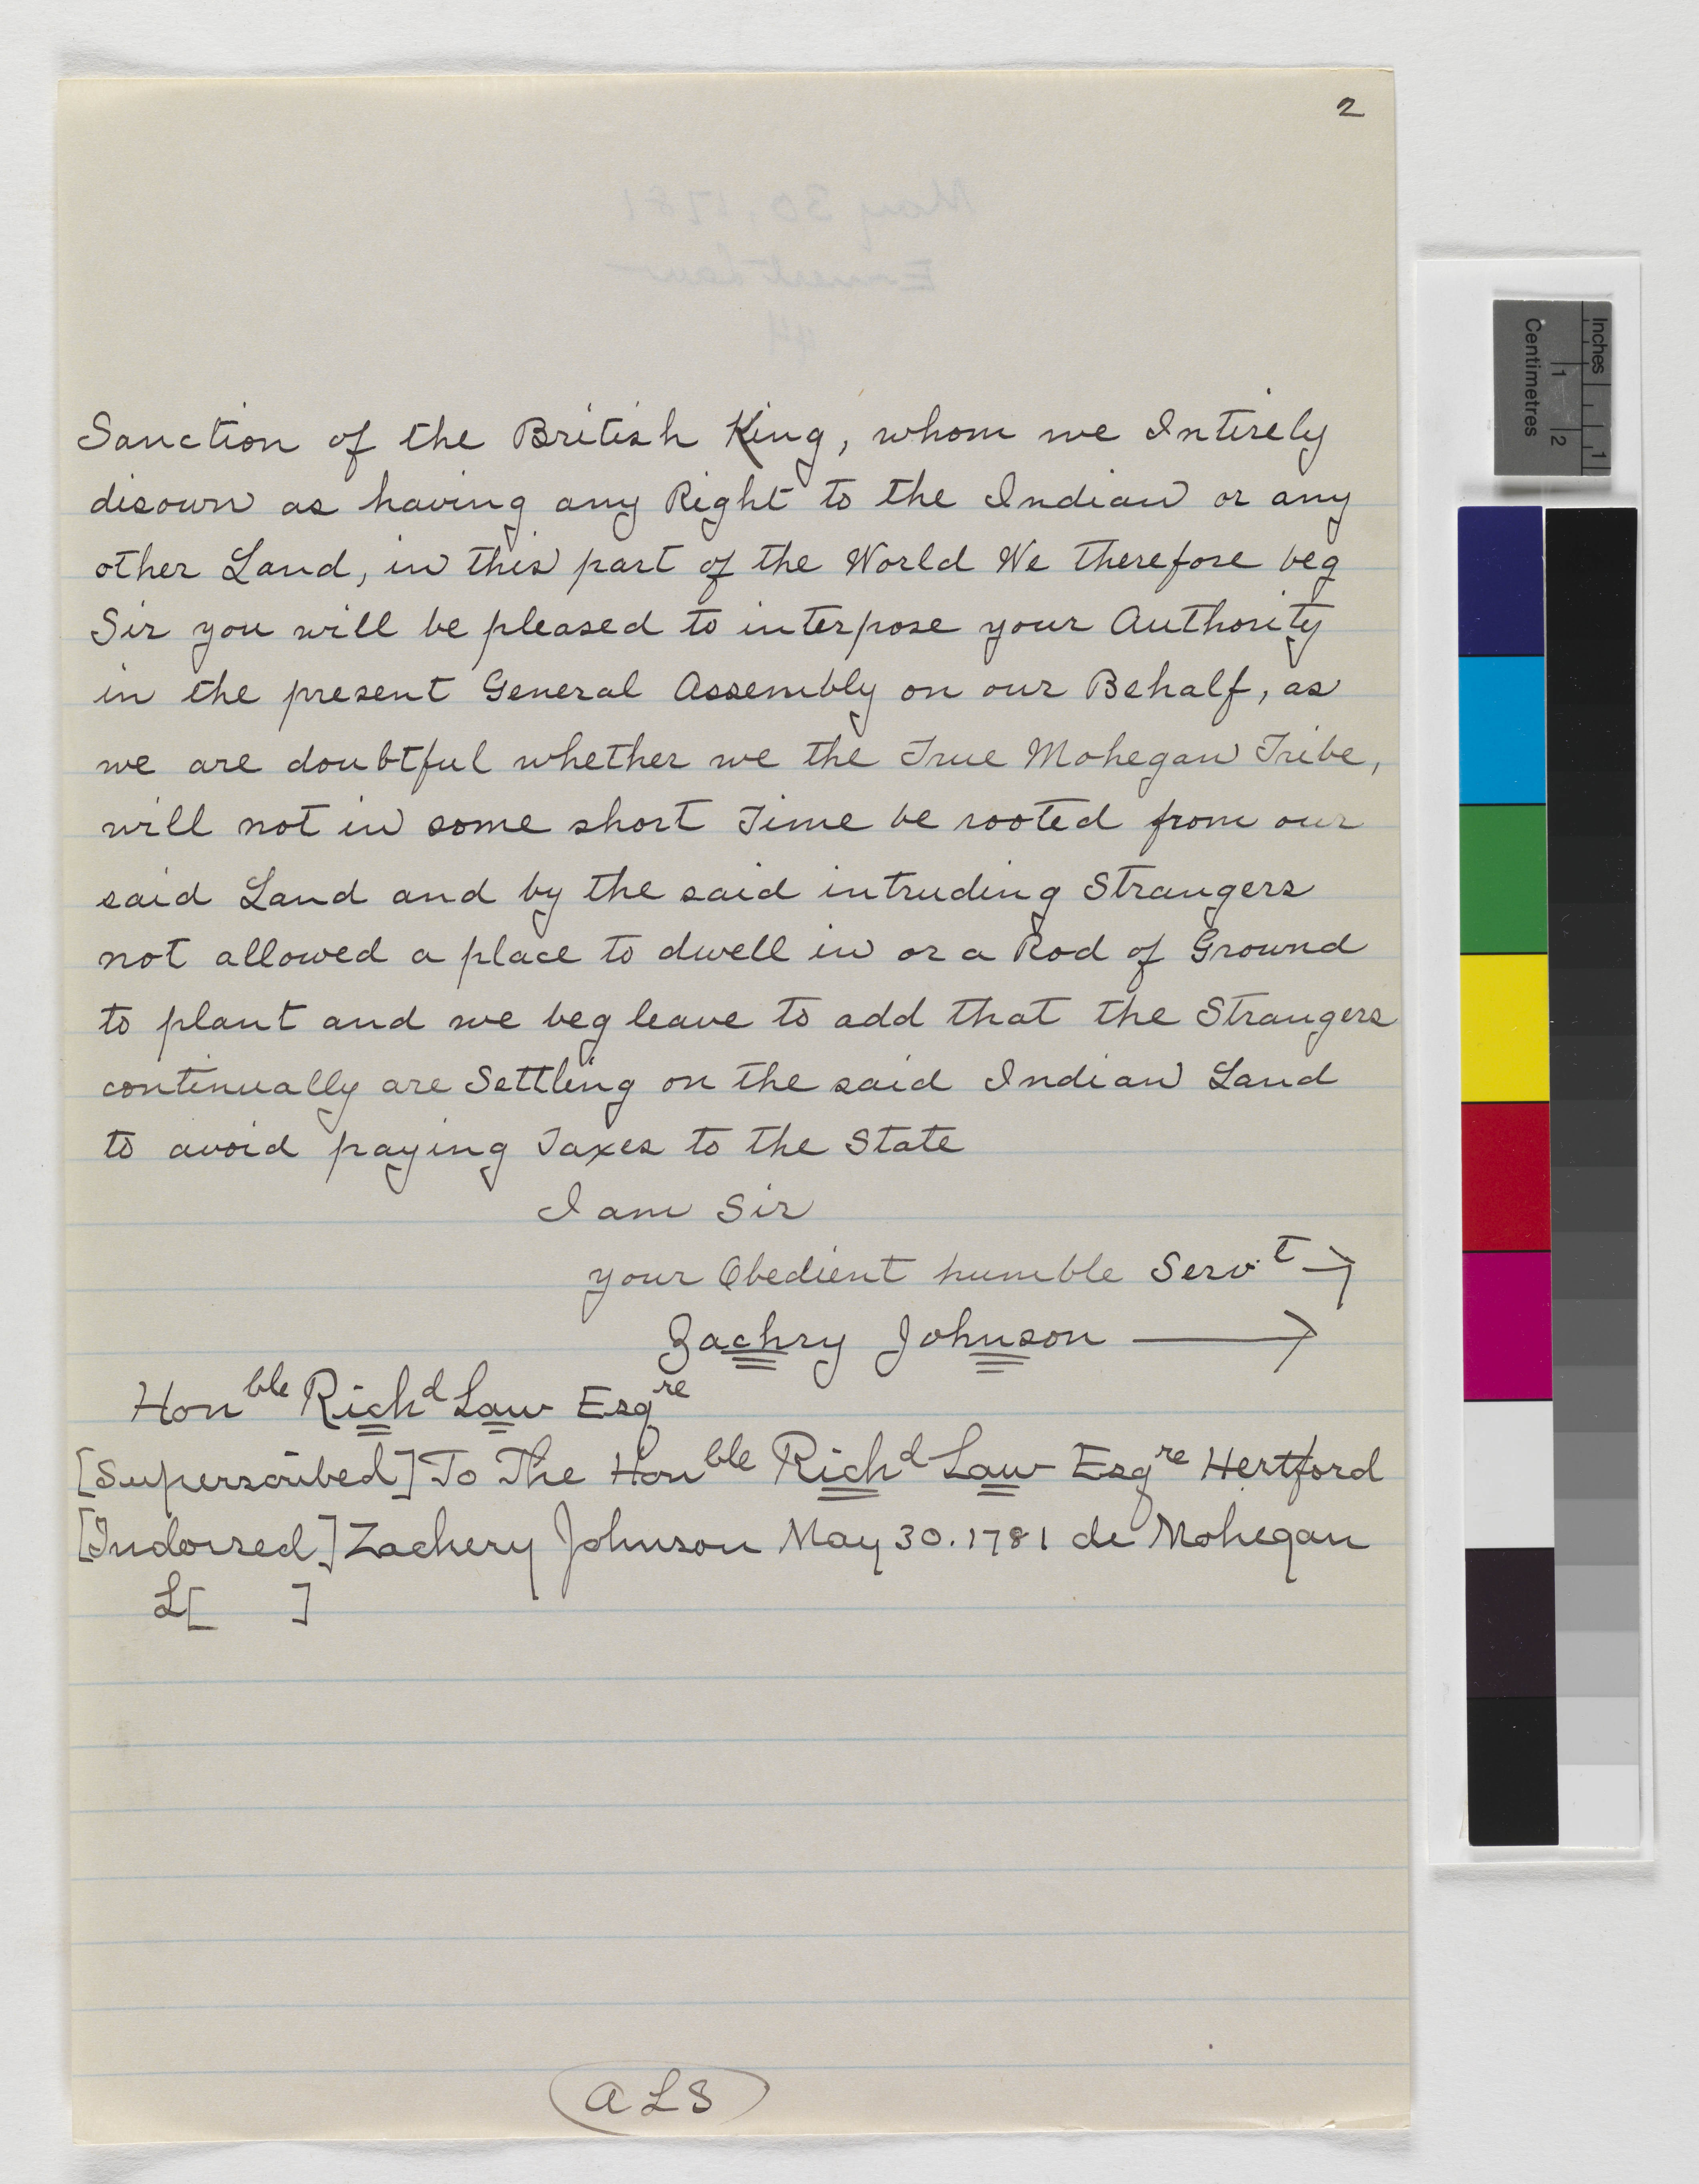 2
Sanction of the British King, whom we Intirely
disown as having any Right to the Indian or any
other Land, in this part of the World We therefore beg
Sir you will be pleased to interpose your Authority
in the present General Assembly on our Behalf, as
we are doubtful whether we the True Mohegan Tribe,
will not in some short Time be rooted from our
said Land and by the said intruding Strangers
not allowed a place to dwell in or a Rod of Ground
to plant and we beg leave to add that the Strangers
continually are Settling on the said Indian Land
to avoid paying Taxes to the State
I am Sir
your Obedient humble Serv.t
Zachry Johnson
Honble Richd Law Esqre
[Superscribed] To The Honble Richd Law Esqre Hertford
[Indorsed] Zachery Johnson May 30. 1781 de Mohegan
L[ ]
ALS
Inches
1
Centimetres
1 2